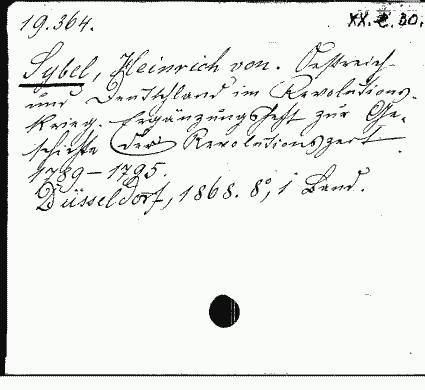 19.364.
XX. e. 30.
Sybel, Heinrich von. Oestreich
und Deutschland im Revolutions-
krieg. Ergänzungsheft zur Ge-
schichte der Revolutionszeit
1789–1795.
Düsseldorf, 1868. 8°, 1 Band.